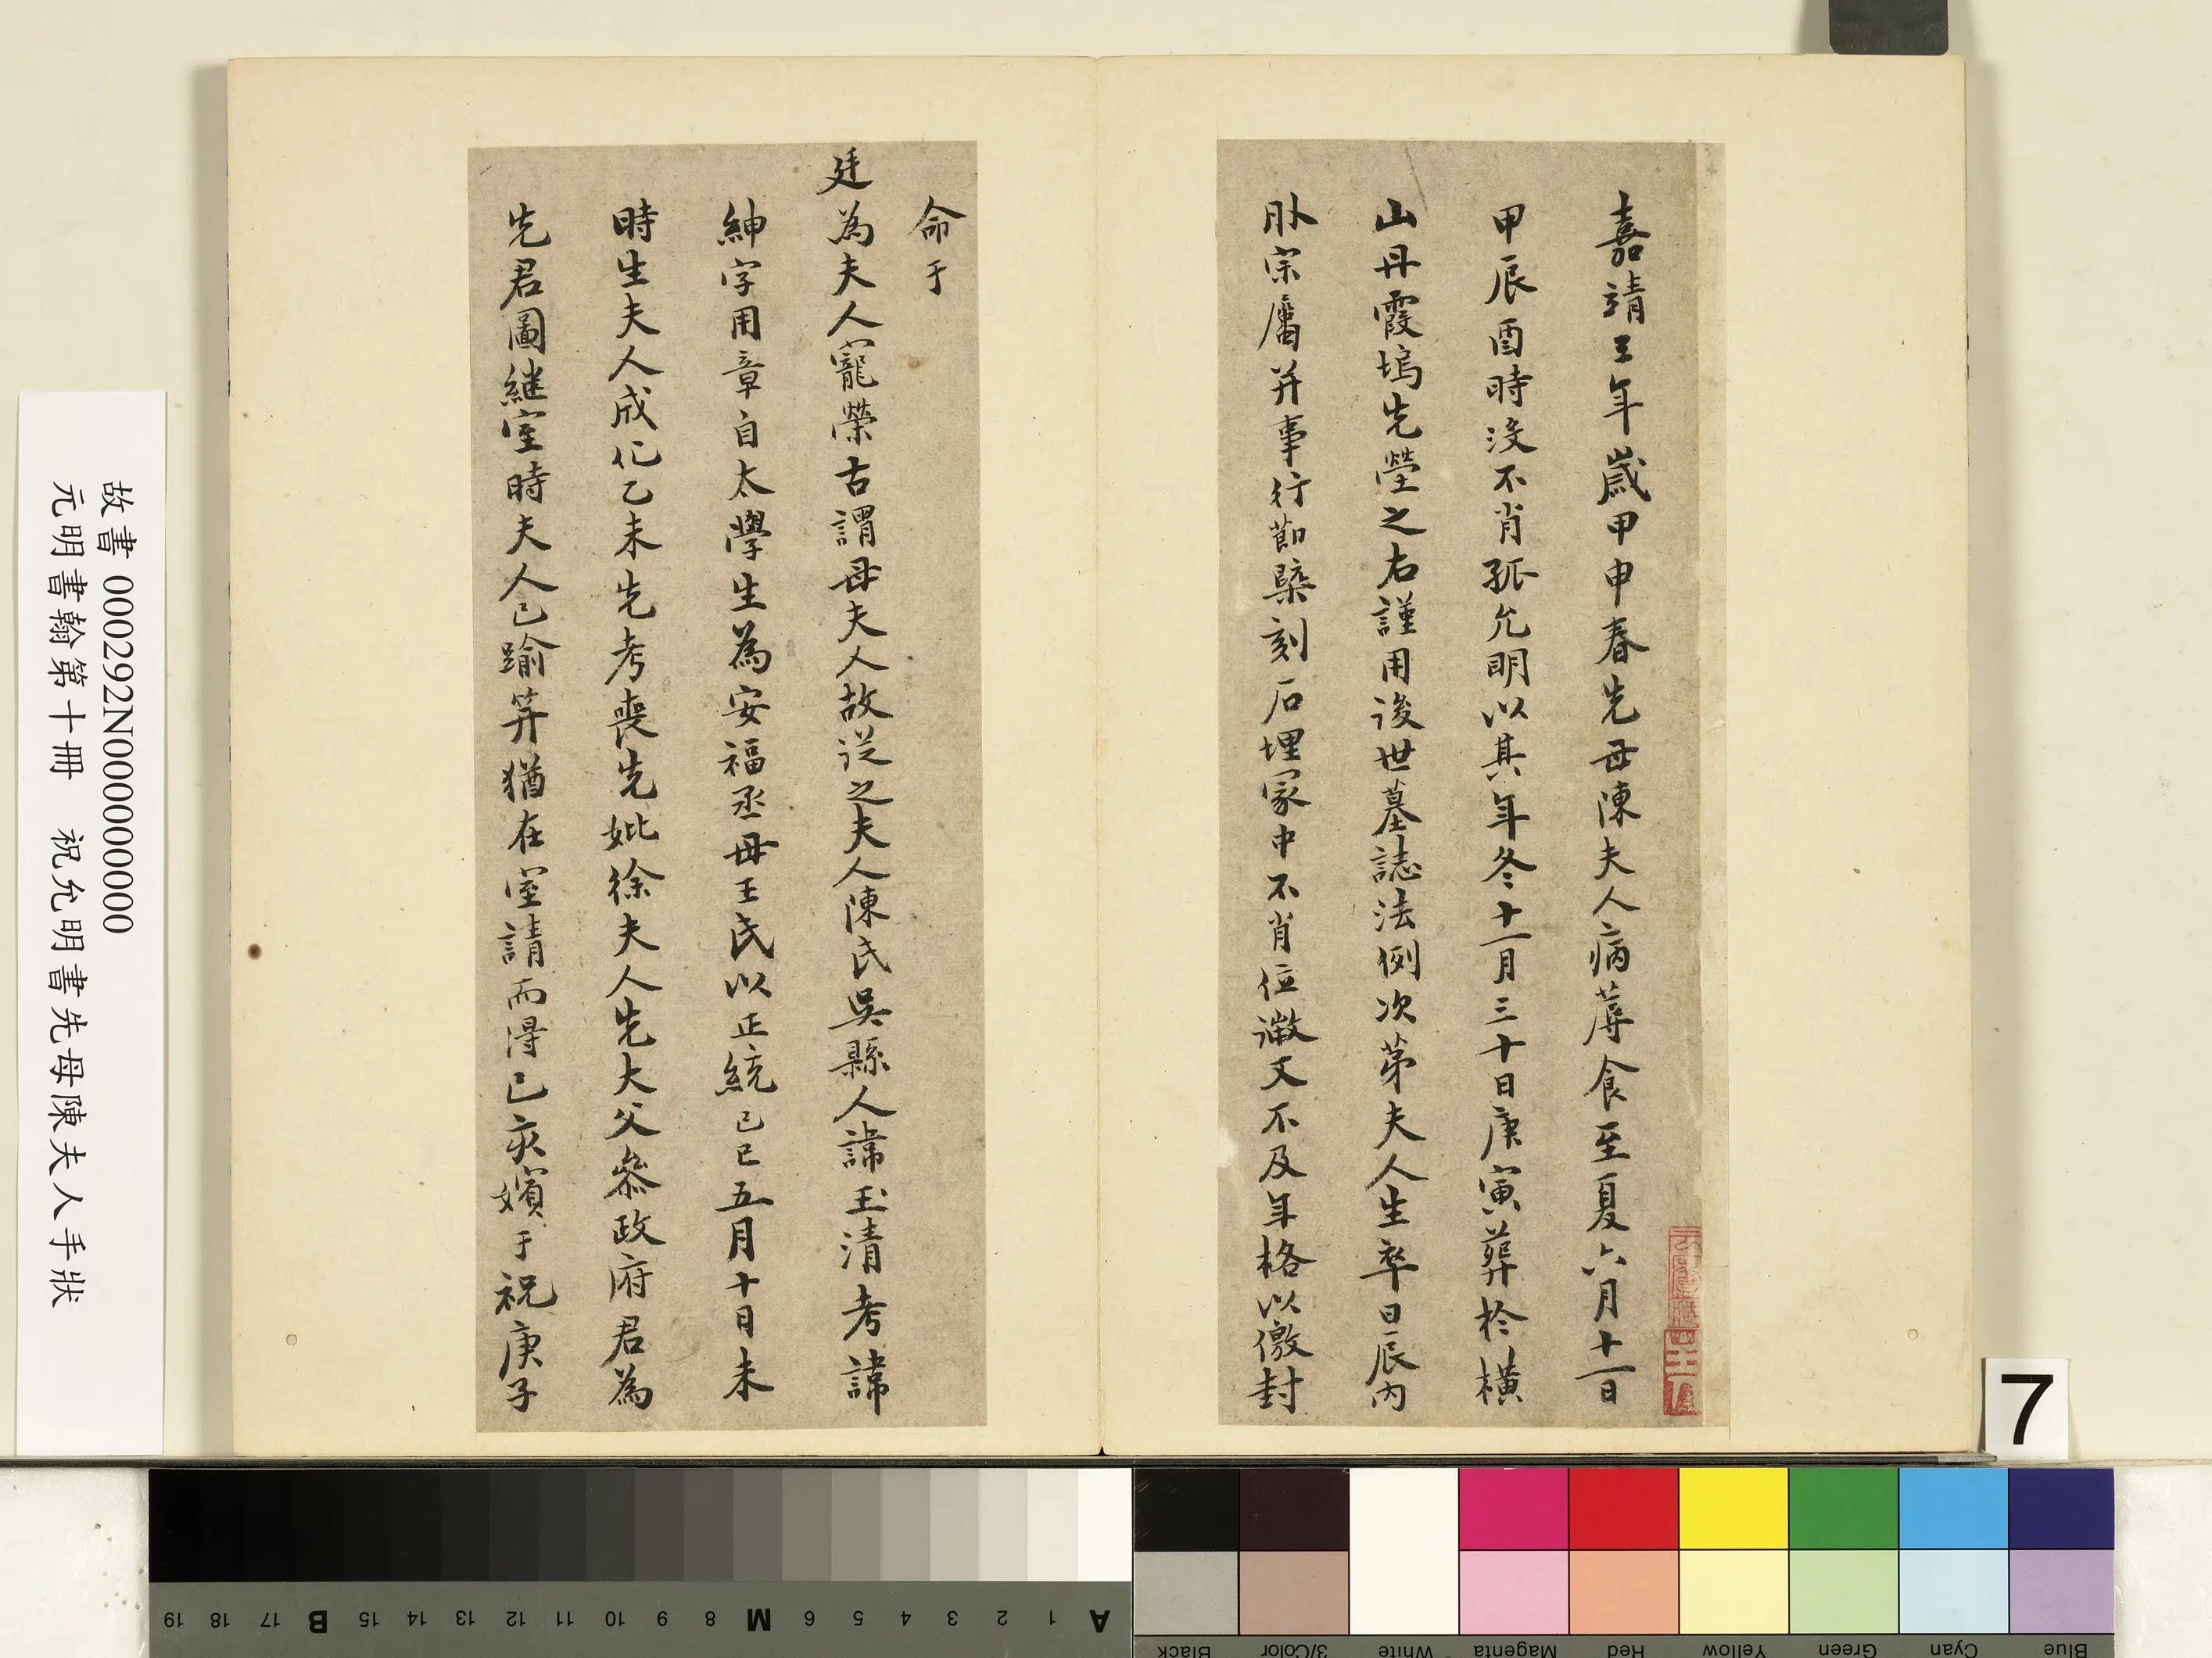 嘉靖三年歲甲申春先母陳夫人病蓐食至夏六月十一日
甲辰酉時沒不肖孤允明以其年冬十一月三十日庚寅葬於橫
山丹霞塢先塋之右謹用後世墓誌法例次第夫人生卒日辰內
外宗屬并事行節槩刻石埋冢中不肖位微文不及年格以徼封
命于
廷為夫人寵榮古謂母夫人故從之夫人陳氏吳縣人諱玉清考諱
紳字用章自太學生為安福丞母王氏以正統己巳五月十日未
時生夫人成化乙未先考喪先妣徐夫人先大父參政府君為
先君圖繼室時夫人已踰笄猶在室請而得已亥嬪于祝庚子
故書 000292N000000000
元明書翰第十冊 祝允明書先母陳夫人手狀
7
A 1 2 3 4 5 6 M 8 9 10 11 12 13 14 15 B 17 18 19
Blue Cyan Green Yellow Red Magenta White 3/Color Black